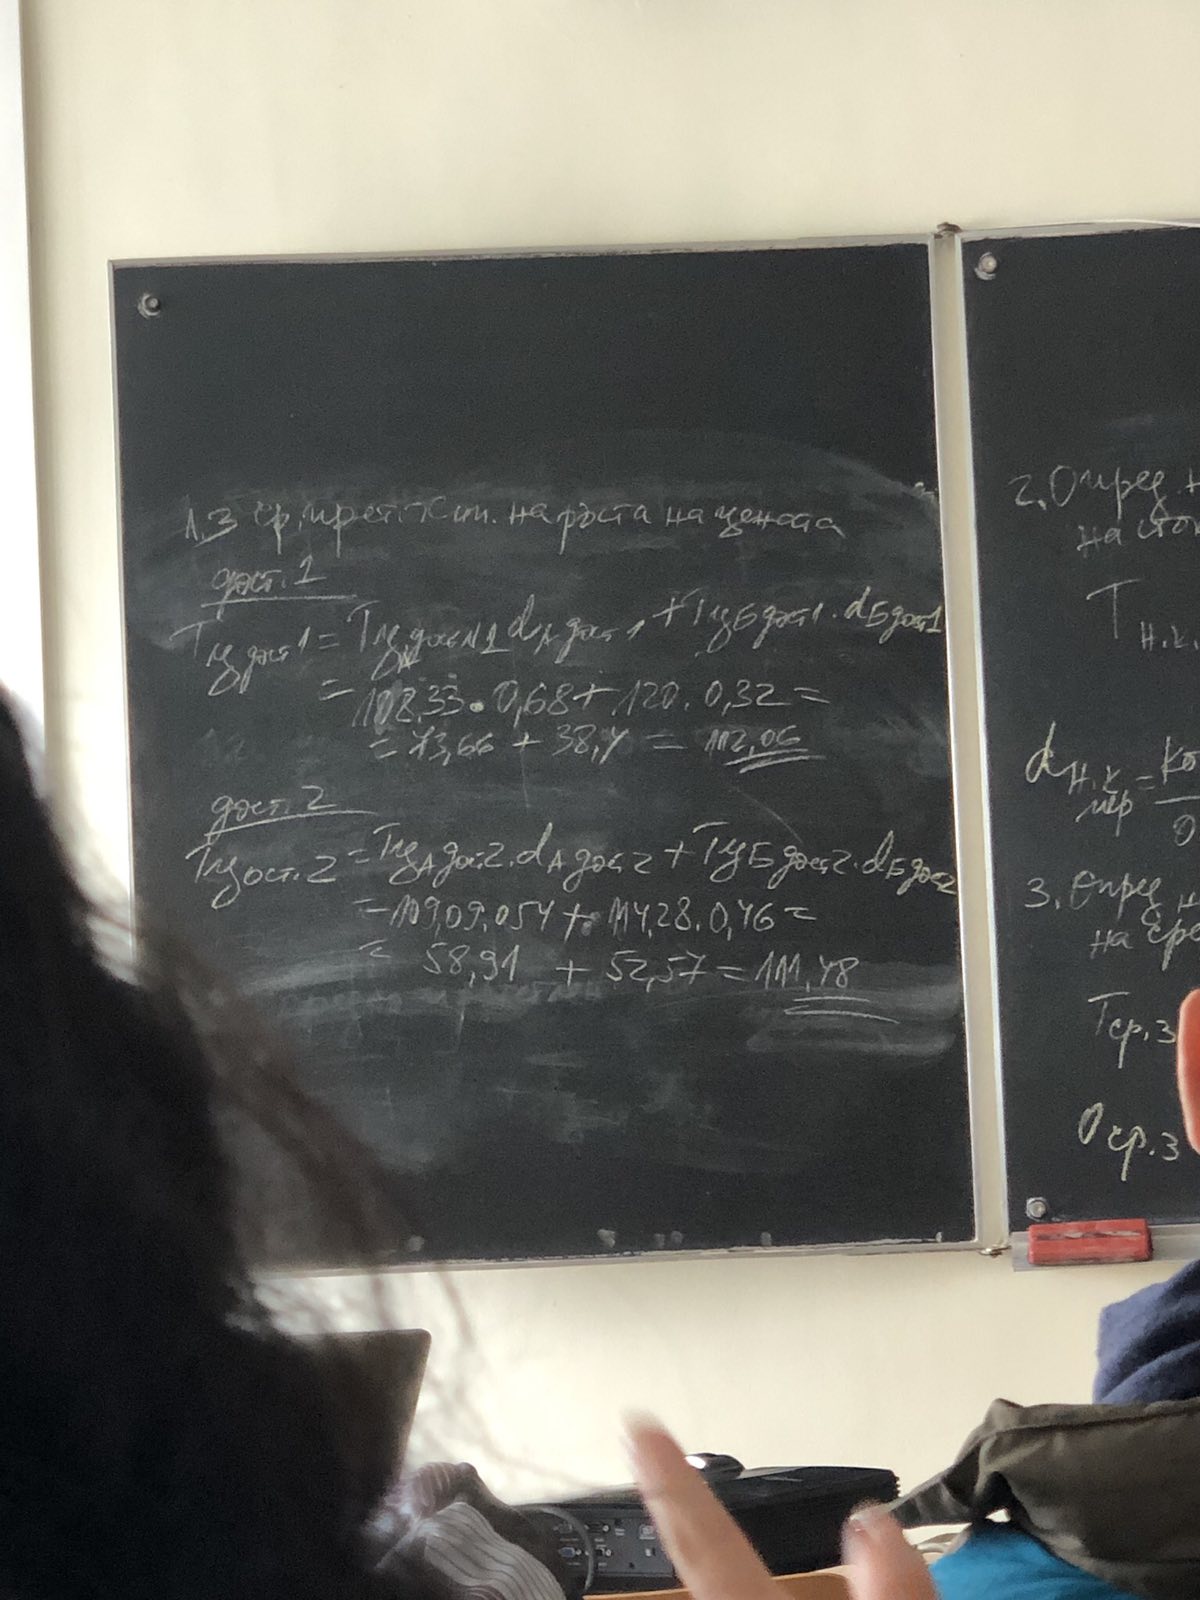 1.3 ср. претегл. на ръста на цената
дост. 1
Тц дост1 = ТцА дост1 . dА дост1 + ТцБ дост1 . dБ дост1
= 108,33 . 0,68 + 120 . 0,32 =
= 73,66 + 38,4 = 112,06
дост. 2
Тц дост. 2 = ТцА дост2 . dА дост2 + ТцБ дост2 . dБ дост2
= 109,09 . 0,54 + 114,28 . 0,46 =
= 58,91 + 52,57 = 111,48
2. Опред. н
на сто
Т Н.К.
d Н.К. = Ко
мер
3. Опред. н
на сре
Т ср.з
О ср.з